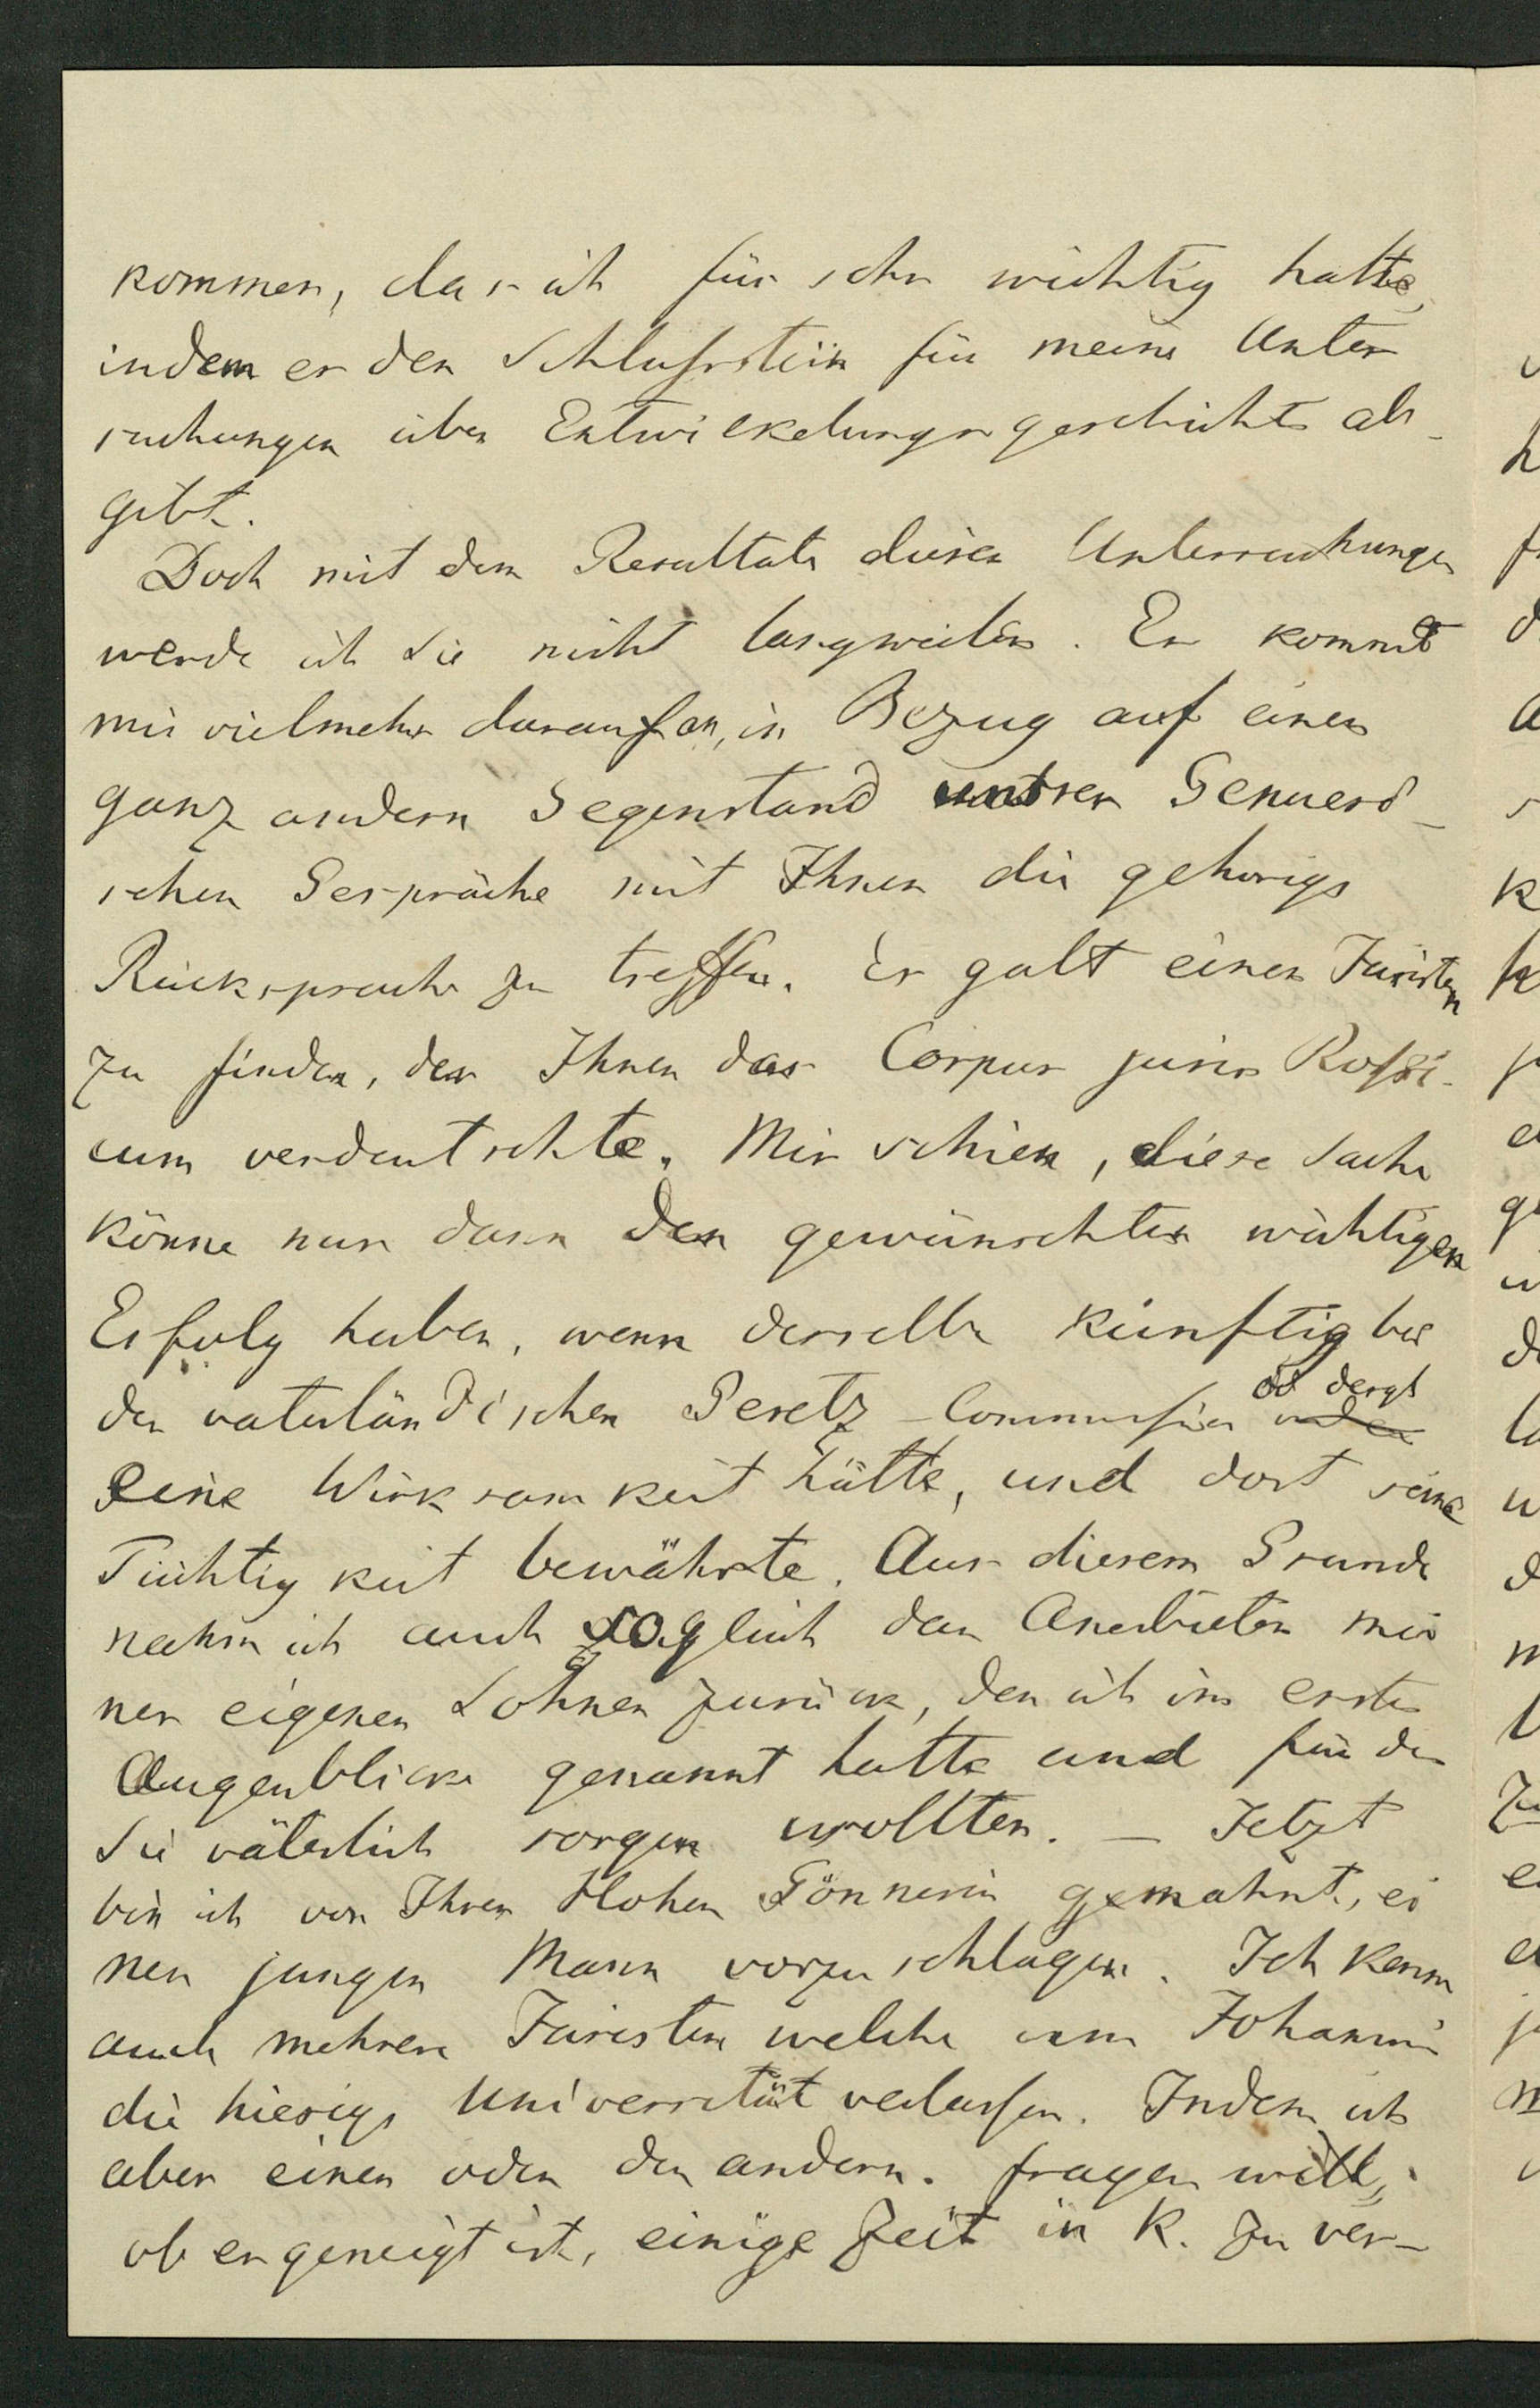 kommen, das ich für sehr wichtig halte,
indem er den Schlußstein für meine Unter
suchungen über Entwickelungsgeschichte ab-
gibt.
Doch mit dem Resultate dieser Untersuchungen
werde ich Sie nicht langweilen. Es kommt
mir vielmehr darauf an, in Bezug auf einen
ganz andern Gegenstand unsrer Genuesi-
schen Gespräche mit Ihnen die gehörige
Rücksprache zu treffen. Es galt einen Juristen
zu finden, der Ihnen das Corpus juris Rossi-
cum verdeutschte. Mir schien, diese Sache
könne nur dann den gewünschten wichtigen
Erfolg haben, wenn derselbe künftig bei
der vaterländischen Gesetz-Commission od dergl
seine Wirksamkeit hätte, und dort seine
Tüchtigkeit bewährte. Aus diesem Grunde
nahm ich auch sogleich das Anerbieten mei
nes eigenen Sohnes zurück, den ich im ersten
Augenblicke genannt hatte und für den
Sie väterlich sorgen wollten. — Jetzt
bin ich von Ihrer Hohen Gönnerin gemahnt, ei
nen jungen Mann vorzuschlagen. Ich kenne
auch mehrere Juristen welche um Johanni
die hiesige Universität verlassen. Indem ich
aber einen oder den andern fragen will,
ob er geneigt ist, einige Zeit in K. zu ver-